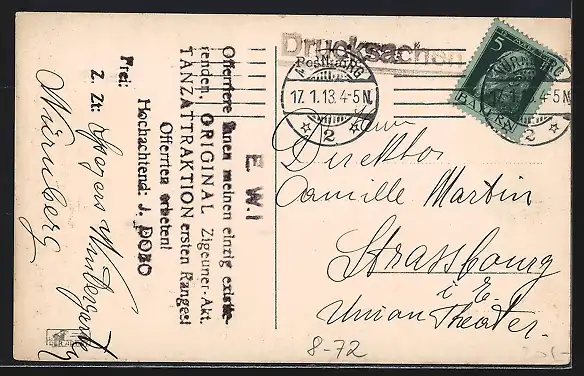 Drucksachen
Postkarte
NÜRNBERG
17. 1. 13. 4-5 N.
2
5
BAYERN
NÜRNBERG
17. 1. 13. 4-5 N.
2
Herrn
Direktor
Camille Martin
Strassbourg
i. E.
Union Theater.
8-72
E. W. !
Offerriere Ihnen meinen einzig existie-
renden, ORIGINAL Zigeuner-Akt.
TANZATTRAKTION ersten Ranges!
Offerrien erbeten!
Hochachtend: J. DOBO
Frei:
Z. Zt. Wintergarten
Nürnberg